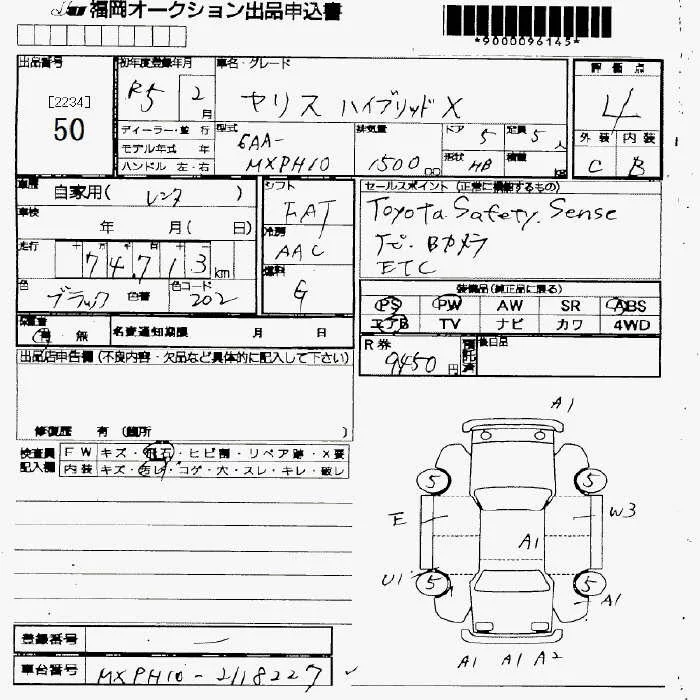 福岡オークション出品申込書
*9000096145*
出品番号
[2234]
50
初年度登録年月
R5 2月
車名・グレード
ヤリス ハイブリッド X
評価点
4
ディーラー・並 行
モデル年式 年
ハンドル 左・右
型式
6AA-
MXPH10
排気量
1500 cc
ドア 5
定員 5人
形状 HB
積載
外装 内装
C B
車歴
自家用( レンタ )
車検
年 月( 日)
走行
74,713 km
色
ブラック 色替
色コード
202
シフト
FAT
冷房
AAC
燃料
G
セールスポイント (正常に機能するもの)
Toyota Safety Sense
ナビ・Bカメラ
ETC
装備品(純正品に限る)
PS PW AW SR ABS
エアB TV ナビ カワ 4WD
保証書
有 無
名変通知期限 月 日
R券
9450円
預託済
後日品
出品店申告欄 (不良内容・欠品など具体的に記入して下さい)
修復歴 有 (箇所 )
検査員記入欄
FW キズ・飛石・ヒビ割・リペア跡・X要
内装 キズ・汚レ・コゲ・穴・スレ・キレ・破レ
A1
5 5
E W3
A1
U1 5 5
A1
A1 A1 A2
登録番号 —
車台番号 MXPH10-2118227